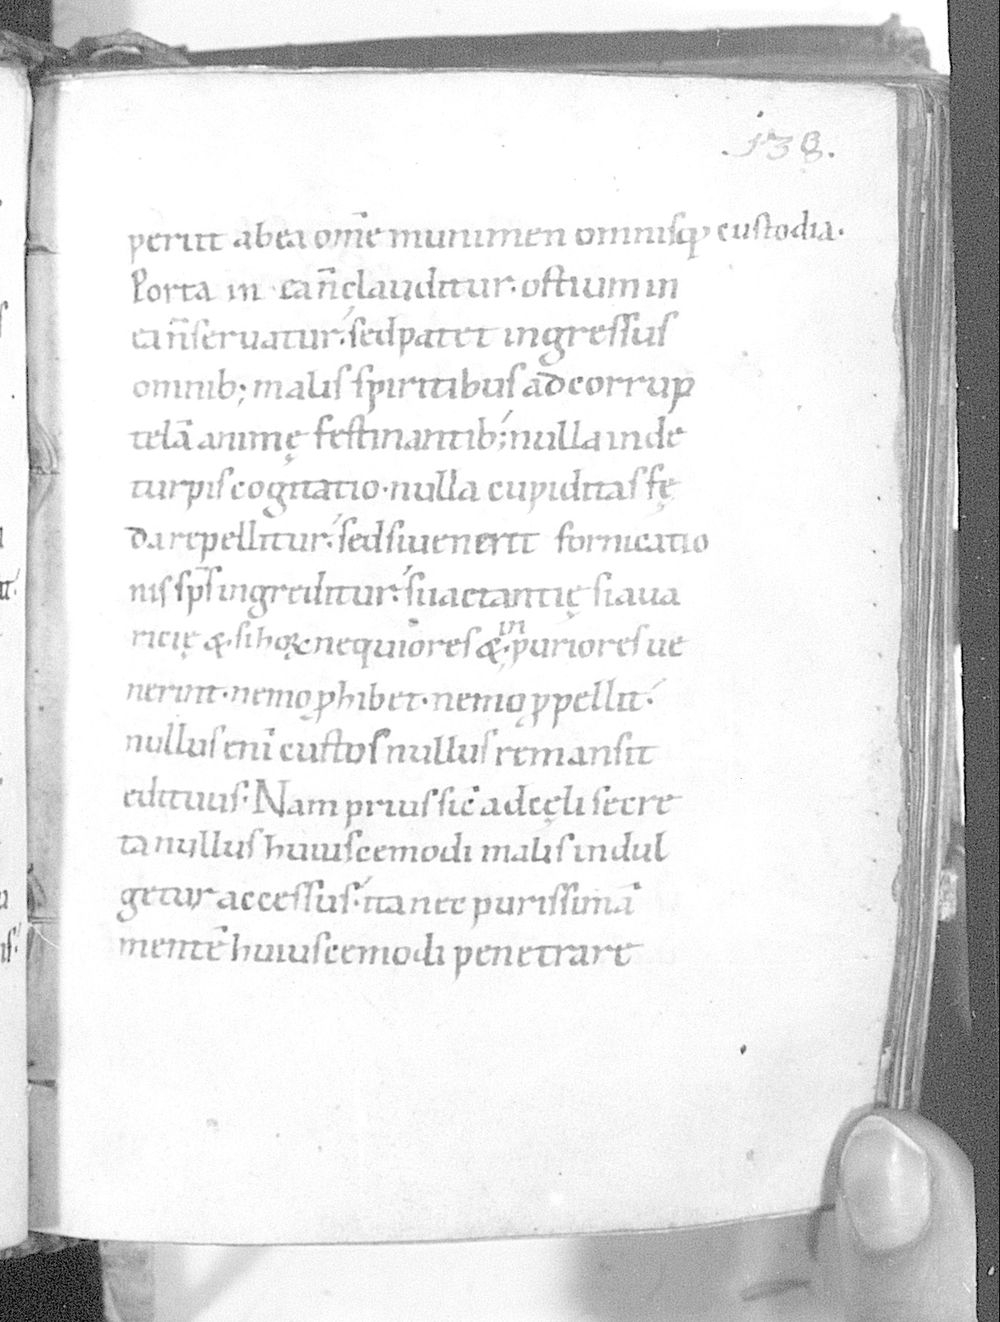 138.
periit ab ea om̄e munimen omnisq; custodia.
Porta in ea ñ clauditur. ostium in
ea ñ seruatur. sed patet ingressus
omnib; malis spiritibus ad corrup
telā animę festinantib; nulla inde
turpis cogitatio. nulla cupiditas fę
da repellitur. sed si uenerit fornicatio
nis sp̄s ingreditur. si iactantię si aua
ricię &. si hoꝝ nequiores &. inpuriores ue
nerint. nemo ꝓhibet. nemo ꝓpellit.
nullus enī custos nullus remansit
edituus. Nam prius sic̄ ad cęli secre
ta nullus huiuscemodi malis indul
getur accessus. ita nec purissimā
mentē huiuscemodi penetrare